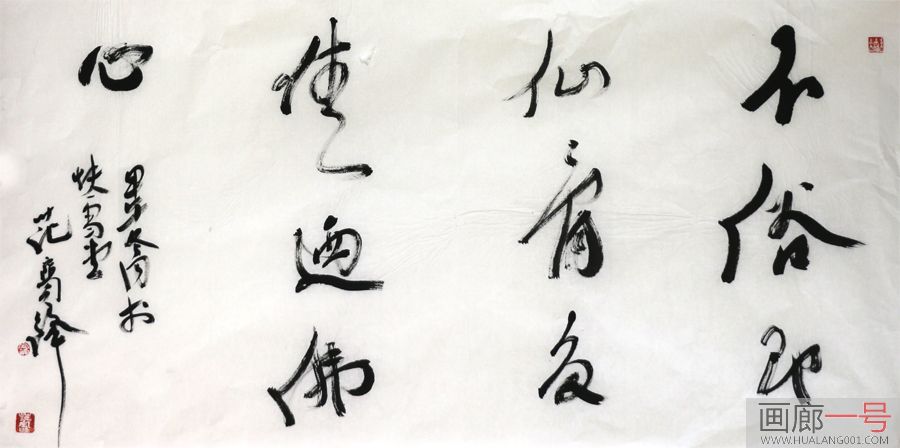 不俗即
仙骨多
情迺佛
心
冬月於
快雪堂
范
画廊一号
WWW.HUALANG001.COM